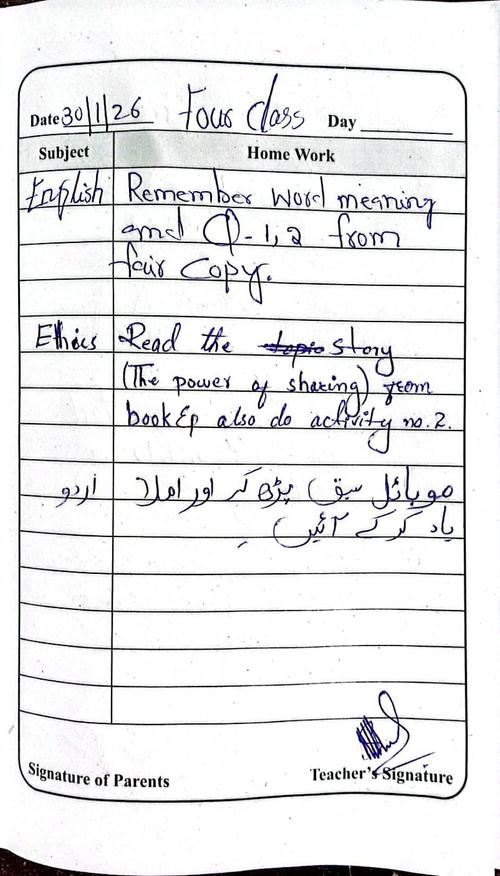 Date 30/1/26 Four class Day
Subject Home Work
English Remember word meaning
and Q-1,2 from
fair copy.
Ethics Read the topic story
(The power of sharing) from
book & also do activity no. 2.
اردو موبائل سبق پڑھ کر اور املا
یاد کر کے آئیں
Signature of Parents Teacher's Signature